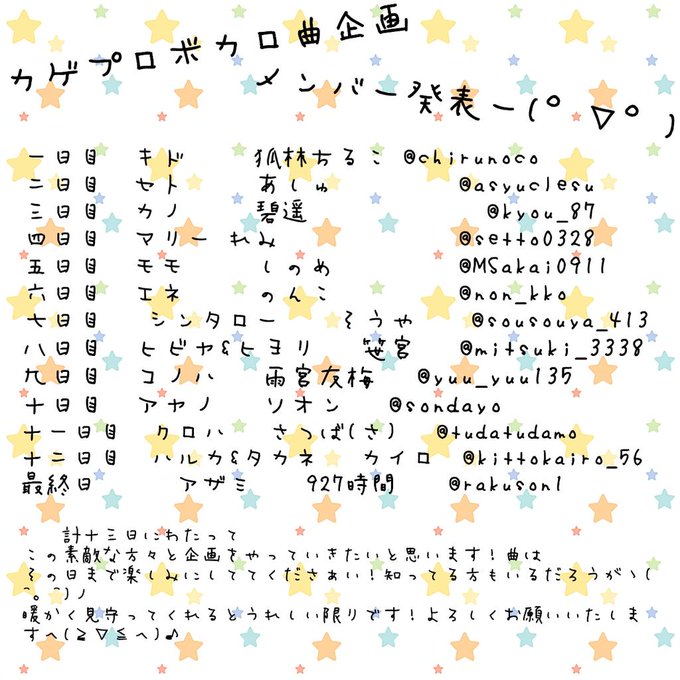 カゲプロボカロ曲企画
メンバー発表ー(゜▽゜)
一日目 キド 狐林ちるこ @chirunoco
二日目 セト あしゅ @asyuclesu
三日目 カノ 碧遥 @kyou_87
四日目 マリー れみ @setto0328
五日目 モモ しのめ @MSakai0911
六日目 エネ のんこ @non_kko
七日目 シンタロー そうや @sousouya_413
八日目 ヒビヤ&ヒヨリ 笹宮 @mitsuki_3338
九日目 コノハ 雨宮友梅 @yuu_yuu135
十日目 アヤノ ソオン @sondayo
十一日目 クロハ さつば(さ) @tudatudamo
十二日目 ハルカ&タカネ カイロ @kittokairo_56
最終日 アザミ 927時間 @rakuson1
計十三日にわたって
この素敵な方々と企画をやっていきたいと思います!曲は
その日まで楽しみにしててくださぁい!知ってる方もいるだろうがヽ(
~。~)ノ
暖かく見守ってくれるとうれしい限りです!よろしくお願いいたしま
すヘ(≧▽≦ヘ)♪